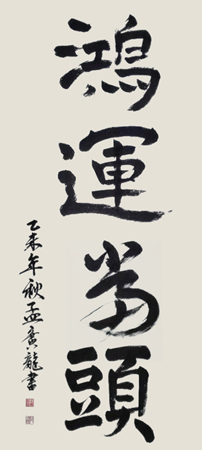 鴻運當頭
乙未年秋孟廣龍書